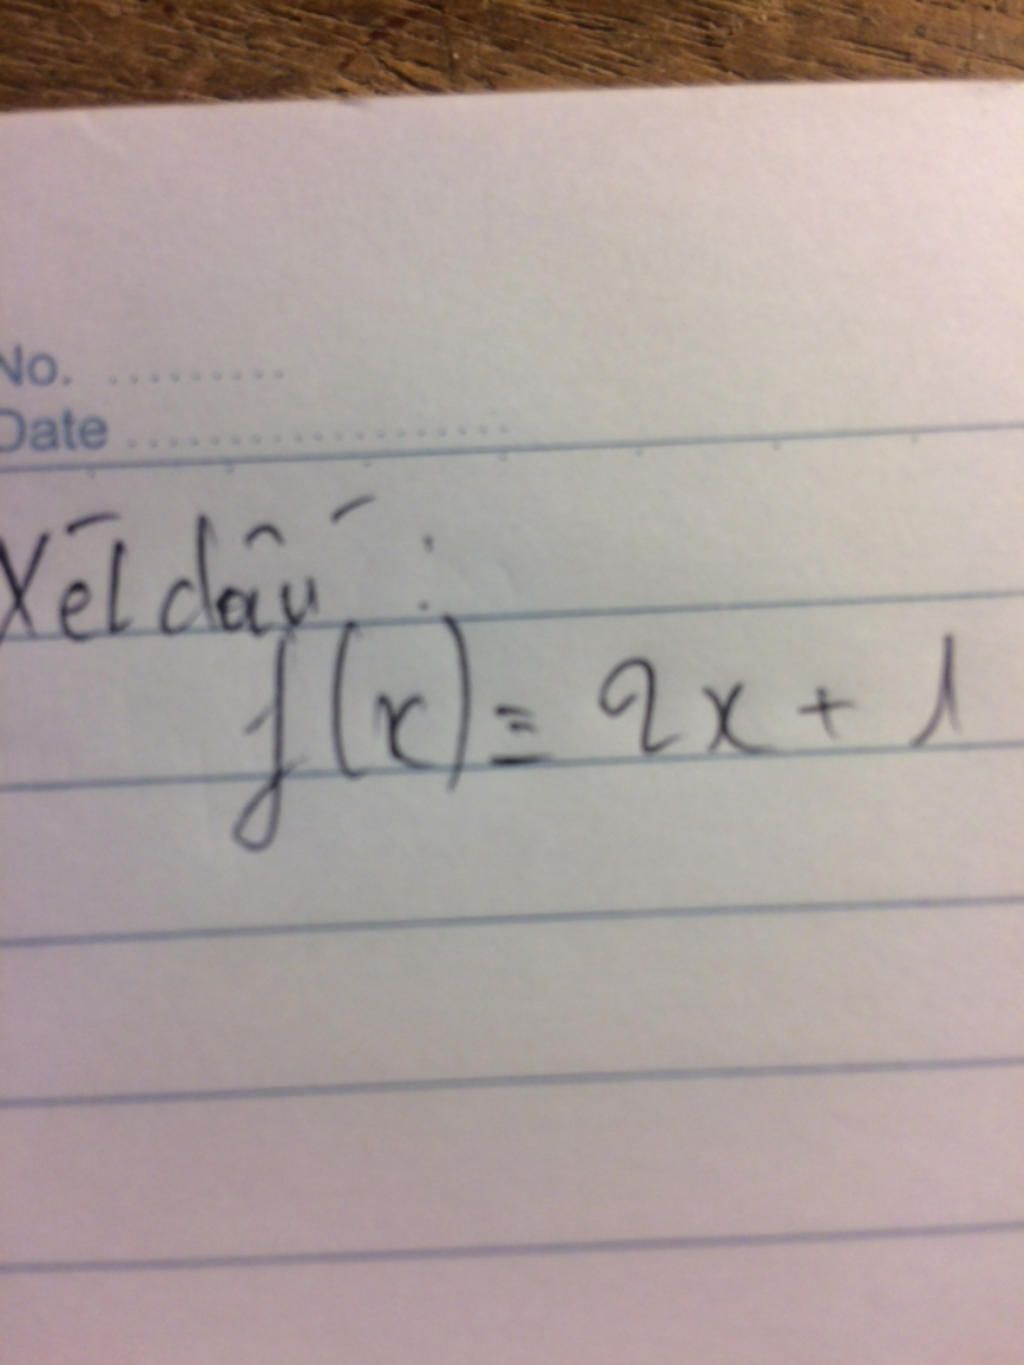 No. .........
Date ...................
Xét dấu :
f(x) = 2x + 1